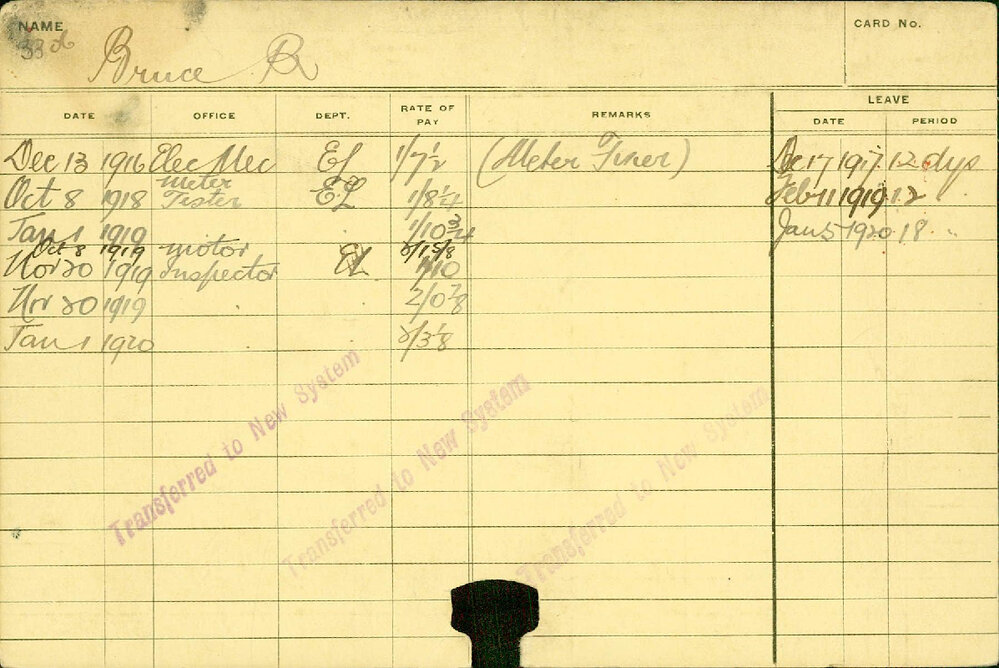 NAME
CARD No.
33
Bruce R
LEAVE
DATE OFFICE DEPT. RATE OF PAY REMARKS DATE PERIOD
Dec 13 1916 Elec Mec EL 1/7½ (Meter Fixer) Dec 17 1917 12 dys
Oct 8 1918 Meter Tester EL 1/8¼ Feb 11 1919 12 "
Jan 1 1919 1/10¾ Jan 5 1920 18 "
Oct 8 1919 motor
Nov 20 1919 Inspector EL
Nov 20 1919 2/0⅞
Jan 1 1920 2/3⅛
Transferred to New System
Transferred to New System
Transferred to New System